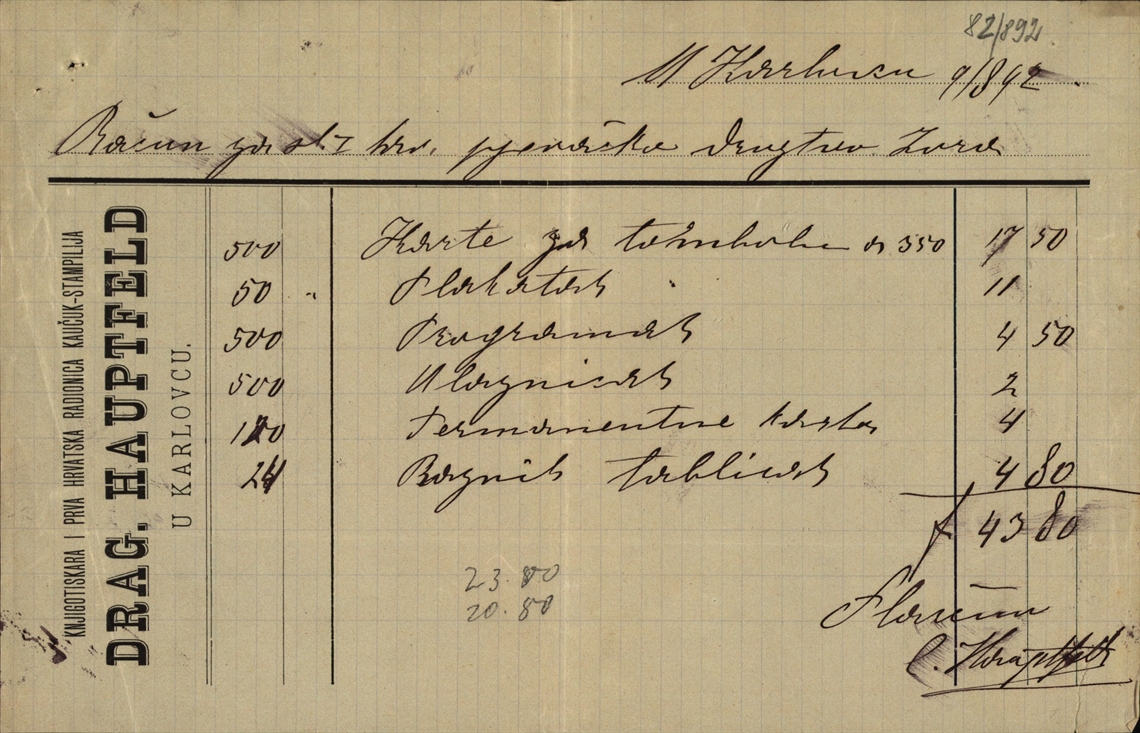 82/892
U Karlovcu 9/8 92
Račun za sl. I hrv. pjevačko družtvo Zora
KNJIGOTISKARA I PRVA HRVATSKA RADIONICA KAUČUK-STAMPILIJA
DRAG. HAUPTFELD
U KARLOVCU.
500 Karte za tombolu à 350 17 50
50 " Plakatah " 11
500 Programah 4 50
500 Ulaznicah 2
120 Permanentne karte 4
24 Raznih tablicah 4 80
f 43 80
23.00
20.80
Plaćeno
Hauptfeld